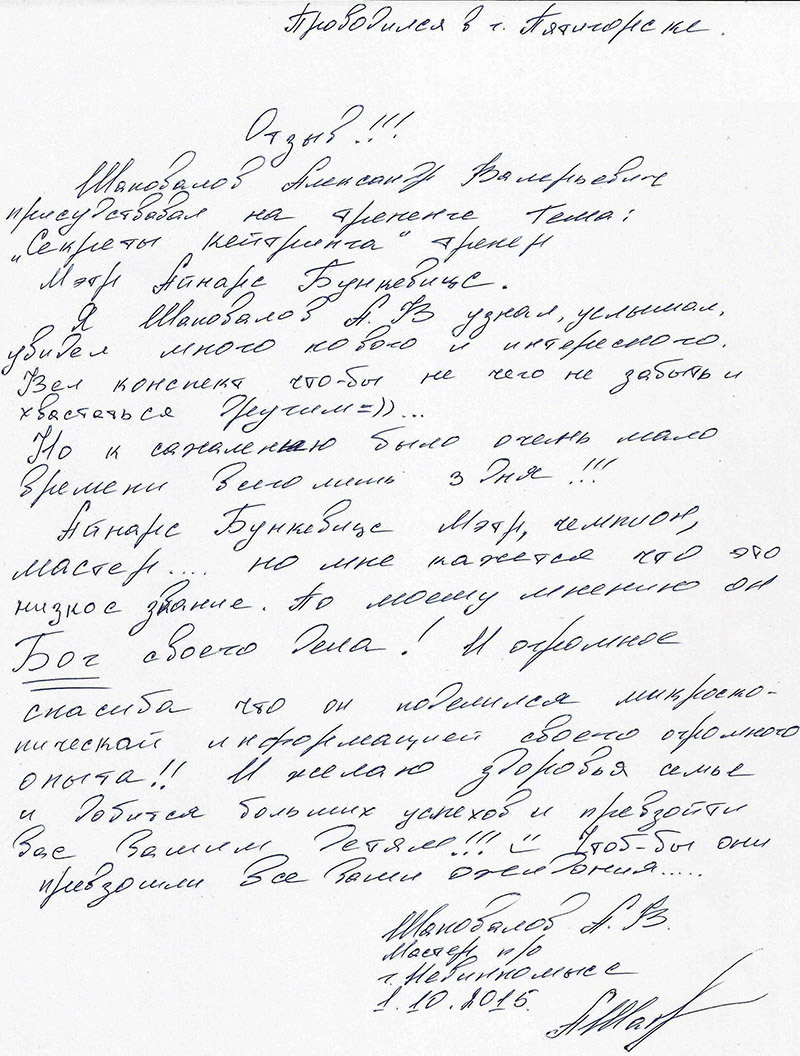 Проводился в г. Пятигорске.
Отзыв!!!
Шаповалов Александр Валерьевич
присудствавал на трененге тема:
„Секреты кейтринга" тренер
Мэтр Айнарс Бункевицс.
Я Шаповалов А. В узнал, услышал,
увидел много нового и интересного.
Вел конспект что-бы не чего не забыть и
хвастаться другим=))...
Но к сажалению было очень мало
времени всего лишь 3 дня!!!
Айнарс Бункевицс Мэтр, чемпион,
мастер.... но мне кажется что это
низкое звание. По моему мнению он
Бог своего дела! И огромное
спасиба что он поделился микроско-
пической информацией своего огромного
опыта!! И желаю здоровья семье
и добится больших успехов и превзойти
Вас Вашим детям!!! Чтоб-бы они
превзошли все Ваши ожидания.....
Шаповалов А. В.
Мастер п/о
г. Невинномысс
1.10.2015.